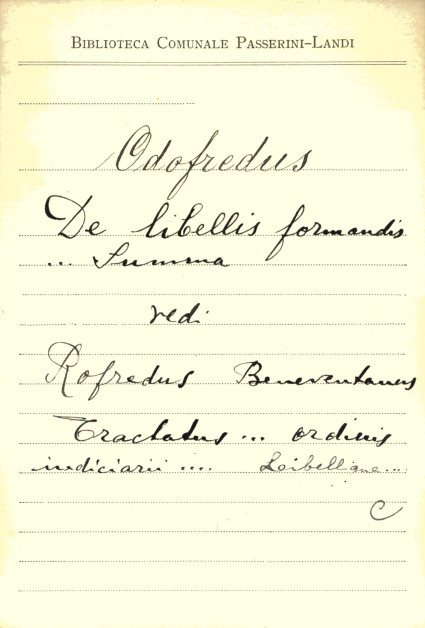 BIBLIOTECA COMUNALE PASSERINI-LANDI
Odofredus
De libellis formandis
... Summa
vedi
Rofredus Beneventanus
Tractatus ... ordinis
iudiciarii .... Loibellique...
C